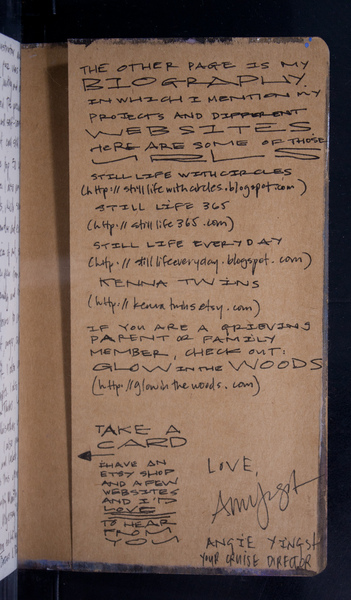 THE OTHER PAGE IS MY
BIOGRAPHY.
IN WHICH I MENTION MY
PROJECTS AND DIFFERENT
WEBSITES.
HERE ARE SOME OF THOSE
URLS
STILL LIFE WITH CIRCLES
(http://stilllifewithcircles.blogspot.com)
STILL LIFE 365
(http://stilllife365.com)
STILL LIFE EVERYDAY
(http://stilllifeeveryday.blogspot.com)
KENNA TWINS
(http://kennatwins.etsy.com)
IF YOU ARE A GRIEVING
PARENT OR FAMILY
MEMBER, CHECK OUT:
GLOW IN THE WOODS
(http://glowinthewoods.com)
TAKE A
CARD
I HAVE AN
ETSY SHOP
AND A FEW
WEBSITES
AND I'D
LOVE
TO HEAR
FROM
YOU
LOVE,
ANGIE YINGST
YOUR CRUISE DIRECTOR